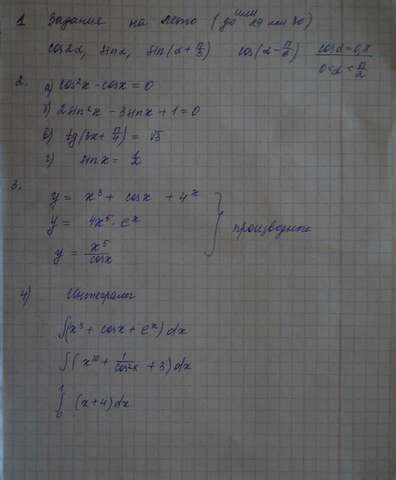 1 Задание на лето (до или 29 или 30)
cos2α, sinα, sin(α+π/3) cos(α-π/6) cosα=0,8
0<α<π/2
2. а) cos²x - cosx = 0
б) 2sin²x - 3sinx + 1 = 0
в) tg(3x + π/4) = √3
г) sinx = 1/2
3.
y = x³ + cosx + 4ˣ
y = 4x⁵ · eˣ
производные
y = x⁵/cosx
4) Интегралы
∫(x³ + cosx + eˣ)dx
∫(x¹⁰ + 1/cos²x + 3)dx
∫₀¹ (x+4)dx